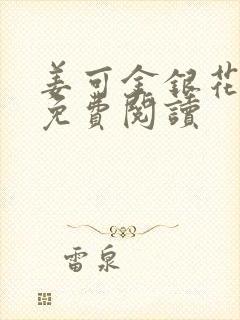 姜可金銀花
免費閱讀
雷泉